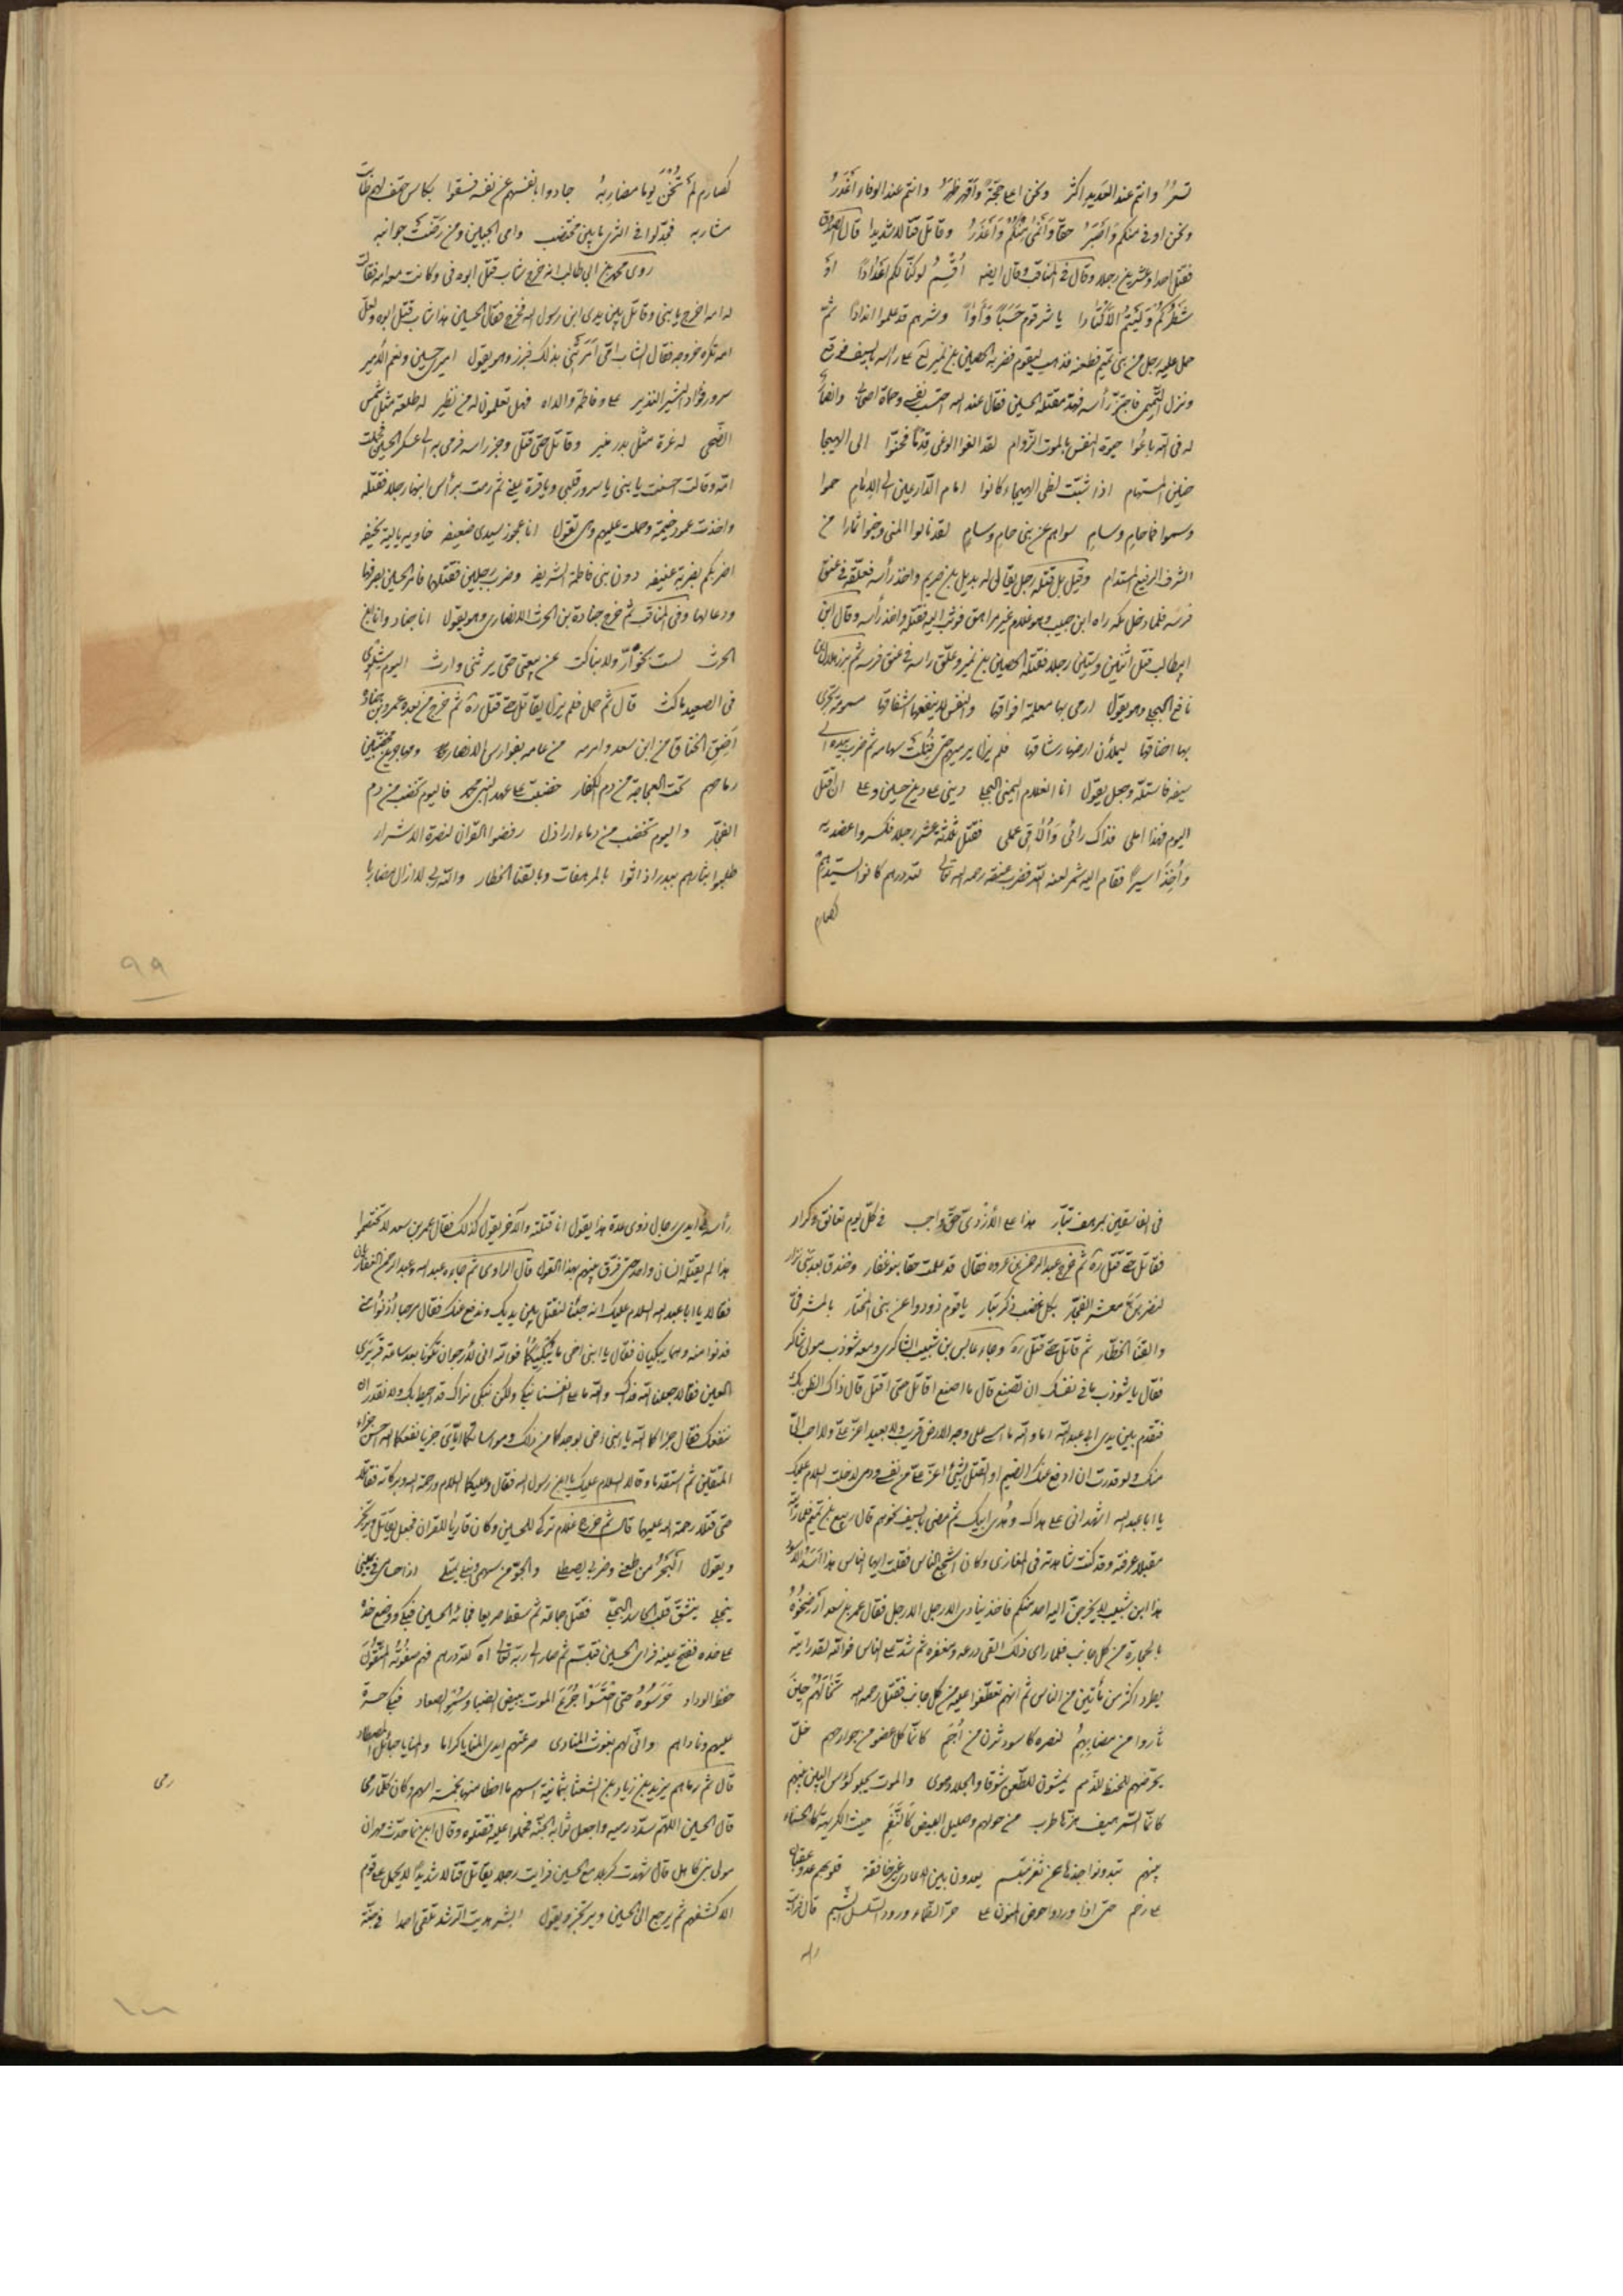 تسعر وانتم عند العديد اكثر ونحن اعلى حجة واقهر ظهر وانتم عند الوفاء اغدر
ونحن اوفى منكم واصبر حقا وانمى منكم واعذر وقاتل قتالا شديدا قال
فقتل احدا وعشرين رجلا وقال في المناقب وقال ايضا اقسم لو كنا لكم اعدادا او
شطركم وليتم الاكتادا يا شر قوم حسبا وآدا وشرهم قد علموا اندادا ثم
حمل عليه رجل من بني تميم فطعنه فذهب ليقوم فضربه الحصين بن نمير لع على رأسه بالسيف فوقع
ونزل التميمي فاجتز رأسه فهد مقتله الحسين فقال عند الله احتسب نفسي وحماة اصحابي
لله في الله باعوا حيوة النفس بالموت الزؤام لقد الفوا الوغى فحنوا الى الهيجا
حنين المستهام اذا شبت لظى الهيجاء كانوا امام الدارعين الى الامام حموا
وسموا فما حام وسام سواهم عن بني حام وسام لقد نالوا المنى من
الشرف الرفيع المستدام وقيل بل قتله رجل يقال له بديل بن صريم واخذ رأسه فعلقه في عنق
فرسه فلما دخل مكة راه ابن حبيب وهو غلام غير مراهق فوثب اليه فقتله واخذ رأسه وقال ابن
ابيطالب قتل اثنين وستين رجلا فقتله الحصين بن نمير وعلق راسه في عنق فرسه ثم برز هلال بن
نافع البجلي وهو يقول ارمى بها معلمة افواقها والنفس لا ينفعها اشفاقها مسمومة تجرى
بها اخفاقها ليملأن ارضها رشاقها فلم يزل يرميهم حتى فنيت سهامه ثم ضرب بيده الى
سيفه فاستله وجعل يقول انا الغلام اليمنى البجلي ديني على دين حسين وعلي ان اقتل
اليوم فهذا املى فذاك رائى وألاقى عملى فقتل ثلثة عشر رجلا فكسروا عضديه
وأخذ اسيرا فقام اليه شمر لعنه الله فضرب عنقه رحمه الله تعالى لله درهم كانوا
كصارم
كصارم لم تخن يوما مضاربه جادوا بانفسهم عن نفسه فسقوا بكاس حتف لهم طابت
مشاربه فجدلوا في الثرى ما بين مختضب دامى الجبين ومن رضت جوانبه
روى محمد بن ابى طالب انه خرج شاب قتل ابوه في وكانت معه امه فقالت
له امه اخرج يا بنى وقاتل بين يدى ابن رسول الله فخرج فقال الحسين هذا شاب قتل ابوه ولعل
امه تكره خروجه فقال الشاب امى امرتنى بذلك فبرز وهو يقول اميرى حسين ونعم الامير
سرور فؤاد البشير النذير على وفاطمة والداه فهل تعلمون له من نظير له طلعة مثل شمس
الضحى له غرة مثل بدر منير وقاتل حتى قتل وجز راسه فرمى به الى عسكر الحسين فحملت
امه وقالت احسنت يا بنى يا سرور قلبى ويا قرة عينى ثم رمت برأس ابنها رجلا فقتلته
واخذت عمود خيمة وحملت عليهم وهى تقول انا عجوز سيدى ضعيفه خاوية بالية نحيفه
اضربكم بضربة عنيفه دون بنى فاطمة الشريفه وضربت رجلين فقتلتهما فامر الحسين بصرفها
ودعا لها وفى المناقب ثم خرج جنادة بن الحرث الانصارى وهو يقول انا جناد وانا ابن
الحرث لست بخوار ولا بناكث عن بيعتى حتى يرثنى وارث اليوم شلوى
فى الصعيد ماكث قال ثم حمل فلم يزل يقاتل حتى قتل ره ثم خرج من بعده عمرو بن جنادة
اضق الخناق من ابن سعد وارمه من عامه بفوارس الانصار ومهاجرين مخضبين
رماحهم تحت العجاجة من دم الكفار خضبت على عهد النبى محمد فاليوم تخضب من دم
الفجار واليوم تخضب من دماء اراذل رفضوا القرآن لنصرة الاشرار
طلبوا بثارهم ببدر اذ اتوا بالمرهفات وبالقنا الخطار والله ربى لا ازال مضاربا
٩٩
فى الفاسقين بمرهف بتار هذا على الازدى حق واجب فى كل يوم تعانق وكرار
فقاتل حتى قتل ره ثم خرج عبد الرحمن بن عروه فقال قد علمت حقا بنو غفار وخندف بعد بنى نزار
لنضربن معشر الفجار بكل عضب ذكر بتار يا قوم ذودوا عن بنى المختار بالمشرفى
والقنا الخطار ثم قاتل حتى قتل ره وجاء عابس بن شبيب الشاكرى ومعه شوذب مولى شاكر
فقال يا شوذب ما فى نفسك ان تصنع قال ما اصنع اقاتل حتى اقتل قال ذاك الظن بك
فتقدم بين يدى ابى عبد الله اما والله ما امسى على وجه الارض قريب ولا بعيد اعز على ولا احب الى
منك ولو قدرت ان ادفع عنك الضيم او القتل بشئ اعز على من نفسى ودمى لفعلت السلام عليك
يا ابا عبد الله اشهد انى على هداك وهدى ابيك ثم مضى بالسيف نحوهم قال ربيع بن تميم فلما رأيته
مقبلا عرفته وقد كنت شاهدته فى المغازى وكان اشجع الناس فقلت ايها الناس هذا اسد الاسود
هذا ابن شبيب لا يخرجن اليه احد منكم فاخذ ينادى الا رجل الا رجل فقال عمر بن سعد ارضخوه
بالحجارة من كل جانب فلما راى ذلك القى درعه ومغفره ثم شد على الناس فوالله لقد رايته
يطرد اكثر من مأتين من الناس ثم انهم تعطفوا عليه من كل جانب فقتل رحمه الله حين
ثاروا من مضاربهم لنصره كاسود ثرن من اجم كانما كل عضو من جوارحهم خل
يحرضهم للحفظ للذمم يمشون للطعن شوقا والجلاد هوى والموت يجلو كؤس البين بينهم
كانما السمر هيف هزها طرب من حولهم وصليل البيض كالنغم حيث الكريهة كالحسناء
بينهم تبدو نواجذها عن ثغر مبتسم يعدون بين الاعادى غير خافقة قلوبهم
على رخم حتى اذا وردوا حوض المنون على حر الظماء ورود السلسل الشبم قال فرايت
راسه
رأسه فى ايدى رجال ذوى عدة هذا يقول انا قتلته والآخر يقول كذلك فقال عمر بن سعد لا تختصموا
هذا لم يقتله انسان واحد حتى فرق بينهم بهذا القول قال الراوى ثم جاءه عبد الله وعبد الرحمن الغفاريان
فقالا يا ابا عبد الله السلام عليك انه جئنا لنقتل بين يديك وندفع عنك فقال مرحبا ادنوا منى
فدنوا منه وهما يبكيان فقال يا ابنى اخى ما يبكيكما فوالله انى لارجو ان تكونا بعد ساعة قريرى
العين فقالا جعلنا الله فداك والله ما على انفسنا نبكى ولكن نبكى عليك نراك قد احيط بك ولا نقدر ان
ننفعك فقال جزاكما الله يا ابنى اخى بوجدكما من ذلك ومواساتكما اياى بانفسكما احسن جزاء
المتقين ثم استقدما وقالا السلام عليك يا ابن رسول الله فقال وعليكما السلام ورحمة الله وبركاته فقاتلا
حتى قتلا رحمة الله عليهما قال ثم خرج غلام تركى للحسين وكان قاريا للقران فجعل يقاتل ويرتجز
ويقول البحر من طعنى وضربى يصطلى والجو من سهمى ونبلى يمتلى اذا حسامى فى يمينى
ينجلى ينشق قلب الحاسد المبجل فقتل جماعة ثم سقط صريعا فجائه الحسين فبكى ووضع خده
على خده ففتح عينه فراى الحسين فتبسم ثم صار الى ربه تعالى آه لله درهم فهم
حفظ الوداد حرسوه حتى احتسوا جرع الموت ببيض الضبا وسمر الصعاد فبكى حسرة
عليهم وناداهم وانى لهم بغوث المنادى صرعتهم ايدى المنايا كراما والمنايا حبائل
قال ثم رماهم يزيد بن زياد بن الشعثا بثمانية اسهم ما اخطا منها بخمسة اسهم وكان كلما رمى
قال الحسين اللهم سدد رميه واجعل ثوابه الجنة فحملوا عليه فقتلوه وقال ابن نما حدث مهران
مولى بنى كاهل قال شهدت كربلا مع الحسين فرايت رجلا يقاتل قتالا شديدا لا يحمل على قوم
الا كشفهم ثم يرجع الى الحسين ويرتجز ويقول ابشر هديت الرشد تلقى احمدا فى جنة
رمى
١٠٠